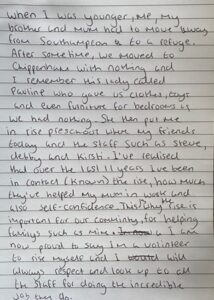 When I was younger, me, my
brother and mum had to move away
from Southampton & to a refuge.
After some time, we moved to
Chippenham with nothing and
I remember this lady called
Pauline who gave us clothes, toys
and even furniture for bedrooms as
we had nothing. She then put me
in rise preschool where my friends
today and the staff such as Steve,
debby and Kirsh. I've realised
that over the last 11 years I've been
in contact (known) the rise, how much
they've helped my mum in work and
also self-confidence. This is why the rise is
important for our comminty, for helping
familys such as mine & I am
now proud to say I'm a volunteer
to rise myself and I will
always respect and look up to all
the staff for doing the incredible
job they do.